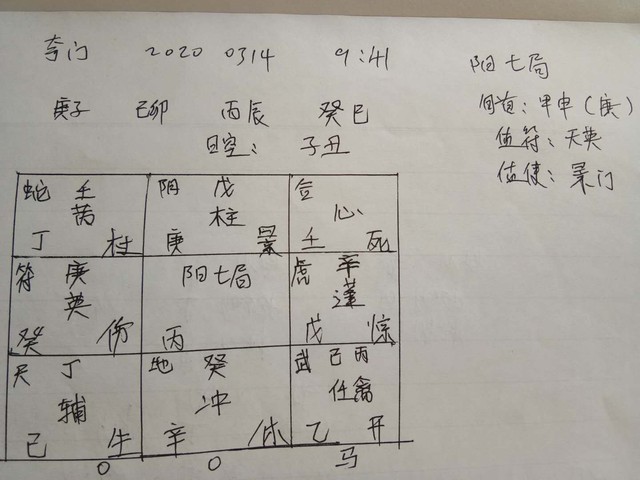 奇门 2020 0314 9:41
阳七局
旬首：甲申（庚）
庚子 己卯 丙辰 癸巳
值符：天英
日空： 子丑
值使：景门
蛇 壬 阴 戊 合
芮 柱 心
丁 杜 庚 景 壬 死
符 庚 阳七局 虎 辛
英 蓬
癸 伤 丙 戊 惊
天 丁 地 癸 武 己 丙
辅 冲 任 禽
己 生 辛 休 乙 开
O O 马